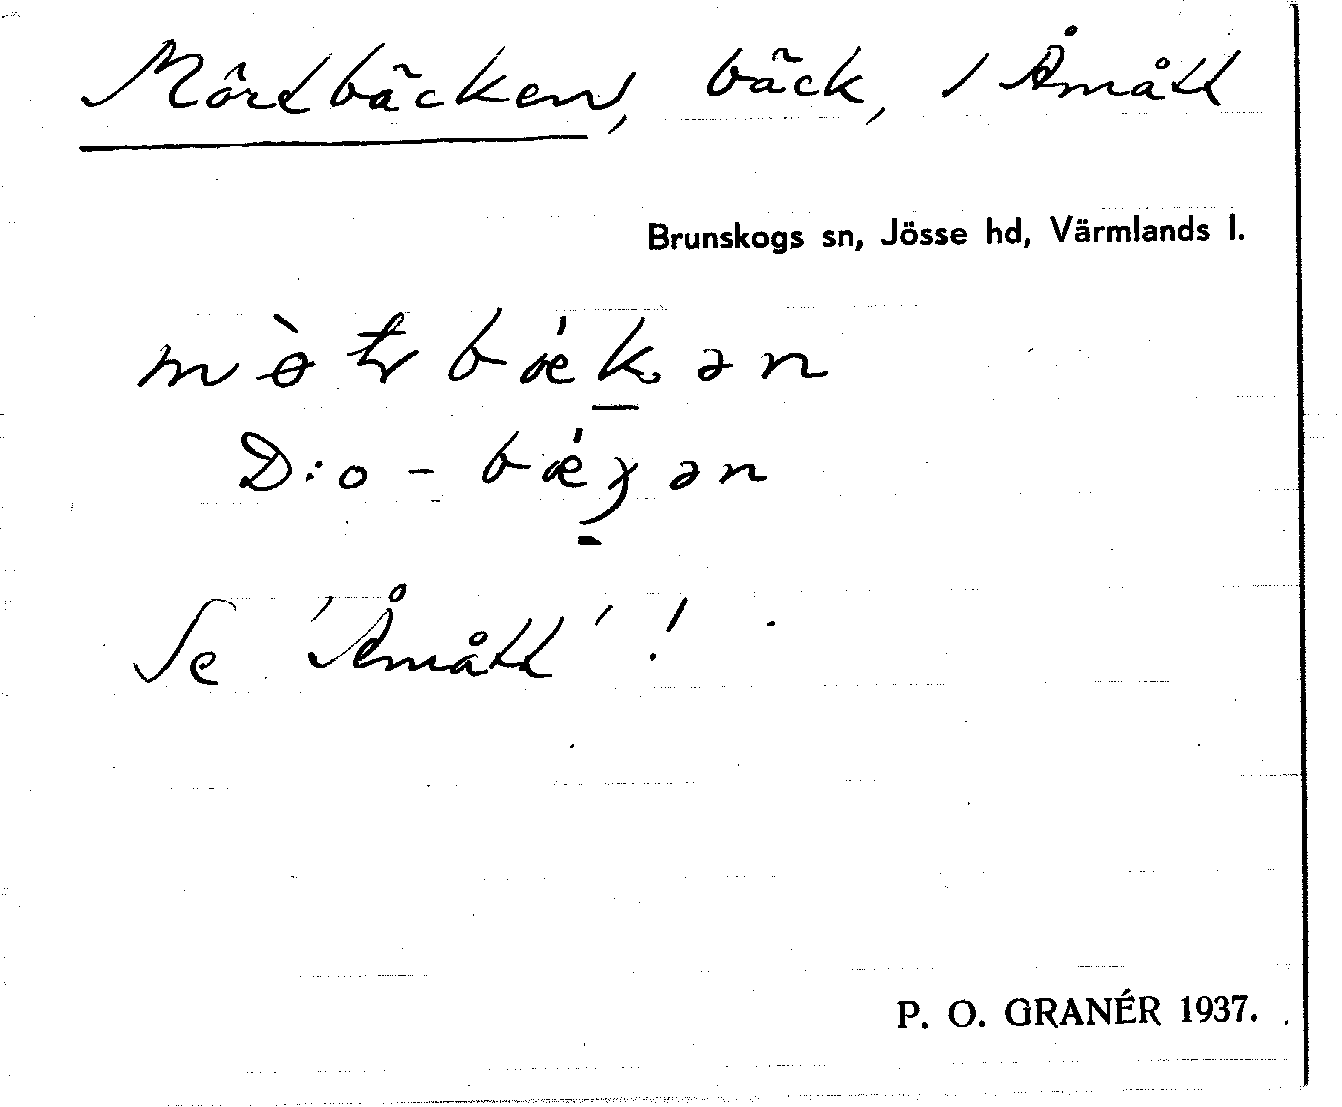 Mörtbäcken, bäck, i Åmått
Brunskogs sn, Jösse hd, Värmlands l.
D:o -
Se 'Åmått'!
P. O. GRANÉR 1937.